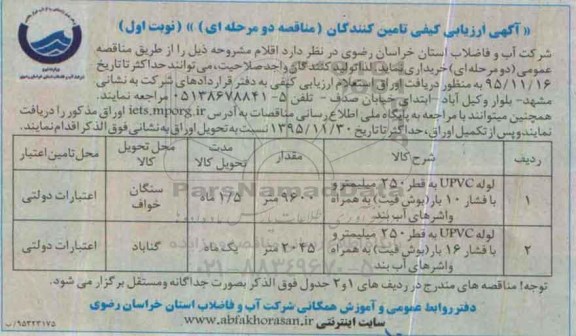 « آگهی ارزیابی کیفی تامین کنندگان (مناقصه دو مرحله ای) » (نوبت اول)
شرکت آب و فاضلاب استان خراسان رضوی در نظر دارد اقلام مشروحه ذیل را از طریق مناقصه
عمومی (دو مرحله ای) خریداری نماید. لذا تولید کنندگان واجد صلاحیت، می توانند حداکثر تا تاریخ
۹۵/۱۱/۱۶ به منظور دریافت اوراق استعلام ارزیابی کیفی به دفتر قراردادهای شرکت به نشانی
مشهد- بلوار وکیل آباد - ابتدای خیابان صدف - تلفن ۵- ۰۵۱۳۸۶۷۸۸۴۱ مراجعه نمایند.
همچنین میتوانند با مراجعه به پایگاه ملی اطلاع رسانی مناقصات به آدرس iets.mporg.ir اوراق مذکور را دریافت
نمایند و پس از تکمیل اوراق، حداکثر تا تاریخ ۱۳۹۵/۱۱/۳۰ نسبت به تحویل اوراق به نشانی فوق الذکر اقدام نمایند.
ردیف شرح کالا مقدار مدت تحویل کالا محل تحویل کالا محل تامین اعتبار
۱ لوله UPVC به قطر ۲۵۰ میلیمتر و با فشار ۱۰ بار (پوش فیت) به همراه واشرهای آب بند ۹۶۰۰ متر ۱/۵ ماه سنگان خواف اعتبارات دولتی
۲ لوله UPVC به قطر ۲۵۰ میلیمتر و با فشار ۱۶ بار (پوش فیت) به همراه واشرهای آب بند ۲۰۴۵ متر یک ماه گناباد اعتبارات دولتی
توجه! مناقصه های مندرج در ردیف های ۱و۲ جدول فوق الذکر بصورت جداگانه و مستقل برگزار می شود.
دفتر روابط عمومی و آموزش همگانی شرکت آب و فاضلاب استان خراسان رضوی
سایت اینترنتی www.abfakhorasan.ir
۹۵۲۲۳۱۷۵/ب
ParsNamadData
۰۲۱-۸۸۳۴۹۶۷۰-۵